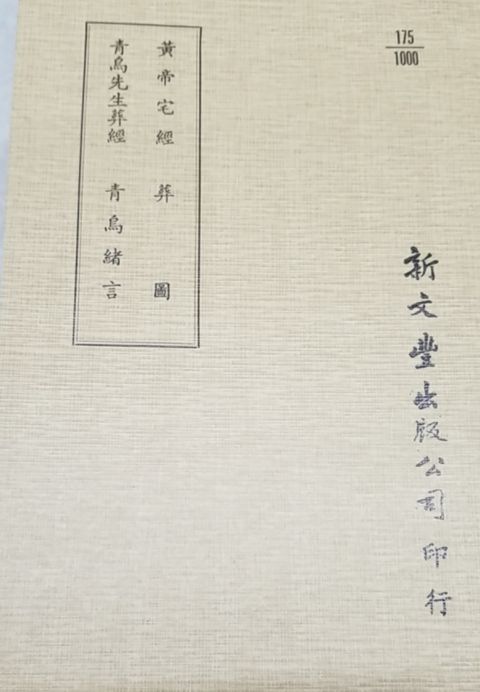 175
1000
新文豐出版公司印行
黃帝宅經 葬圖
青烏先生葬經 青烏緒言